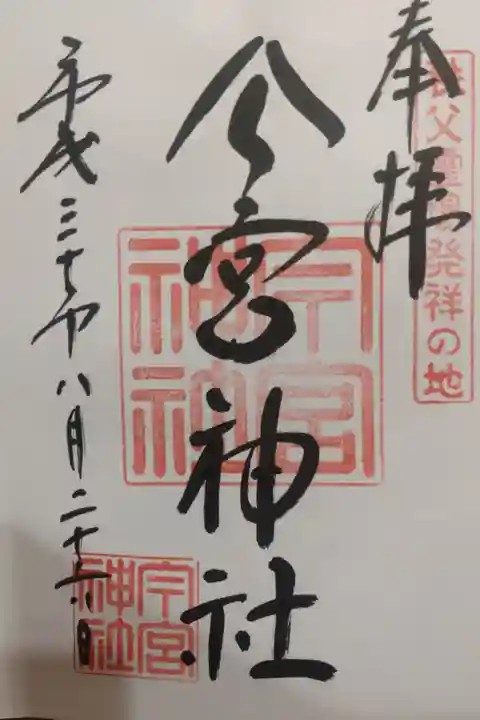 奉拝
秩父霊場発祥の地
今宮神社
今宮
神社
平成三十年八月二十六日
今宮
神社